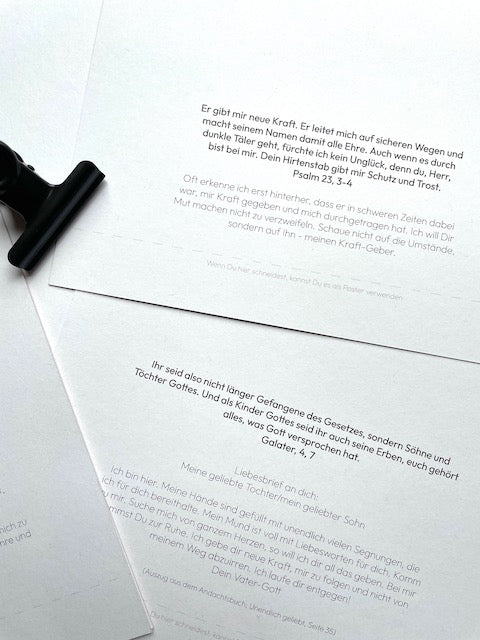 Er gibt mir neue Kraft. Er leitet mich auf sicheren Wegen und
macht seinem Namen damit alle Ehre. Auch wenn es durch
dunkle Täler geht, fürchte ich kein Unglück, denn du, Herr,
bist bei mir. Dein Hirtenstab gibt mir Schutz und Trost.
Psalm 23, 3-4
Oft erkenne ich erst hinterher, dass er in schweren Zeiten dabei
war, mir Kraft gegeben und mich durchgetragen hat. Ich will Dir
Mut machen nicht zu verzweifeln. Schaue nicht auf die Umstände,
sondern auf Ihn - meinen Kraft-Geber.
Wenn Du hier schneidest, kannst Du es als Poster verwenden
Ihr seid also nicht länger Gefangene des Gesetzes, sondern Söhne und
Töchter Gottes. Und als Kinder Gottes seid ihr auch seine Erben, euch gehört
alles, was Gott versprochen hat.
Galater, 4, 7
Liebesbrief an dich:
Meine geliebte Tochter/mein geliebter Sohn
Ich bin hier. Meine Hände sind gefüllt mit unendlich vielen Segnungen, die
ich für dich bereithalte. Mein Mund ist voll mit Liebesworten für dich. Komm
mir. Suche mich von ganzem Herzen, so will ich dir all das geben. Bei mir
Du zur Ruhe. Ich gebe dir neue Kraft, mir zu folgen und nicht von
meinem Weg abzuirren. Ich laufe dir entgegen!
Dein Vater-Gott
(Auszug aus dem Andachtsbuch: Unendlich geliebt, Seite 35)
Du hier schneidest, kannst
mich zu
hre und